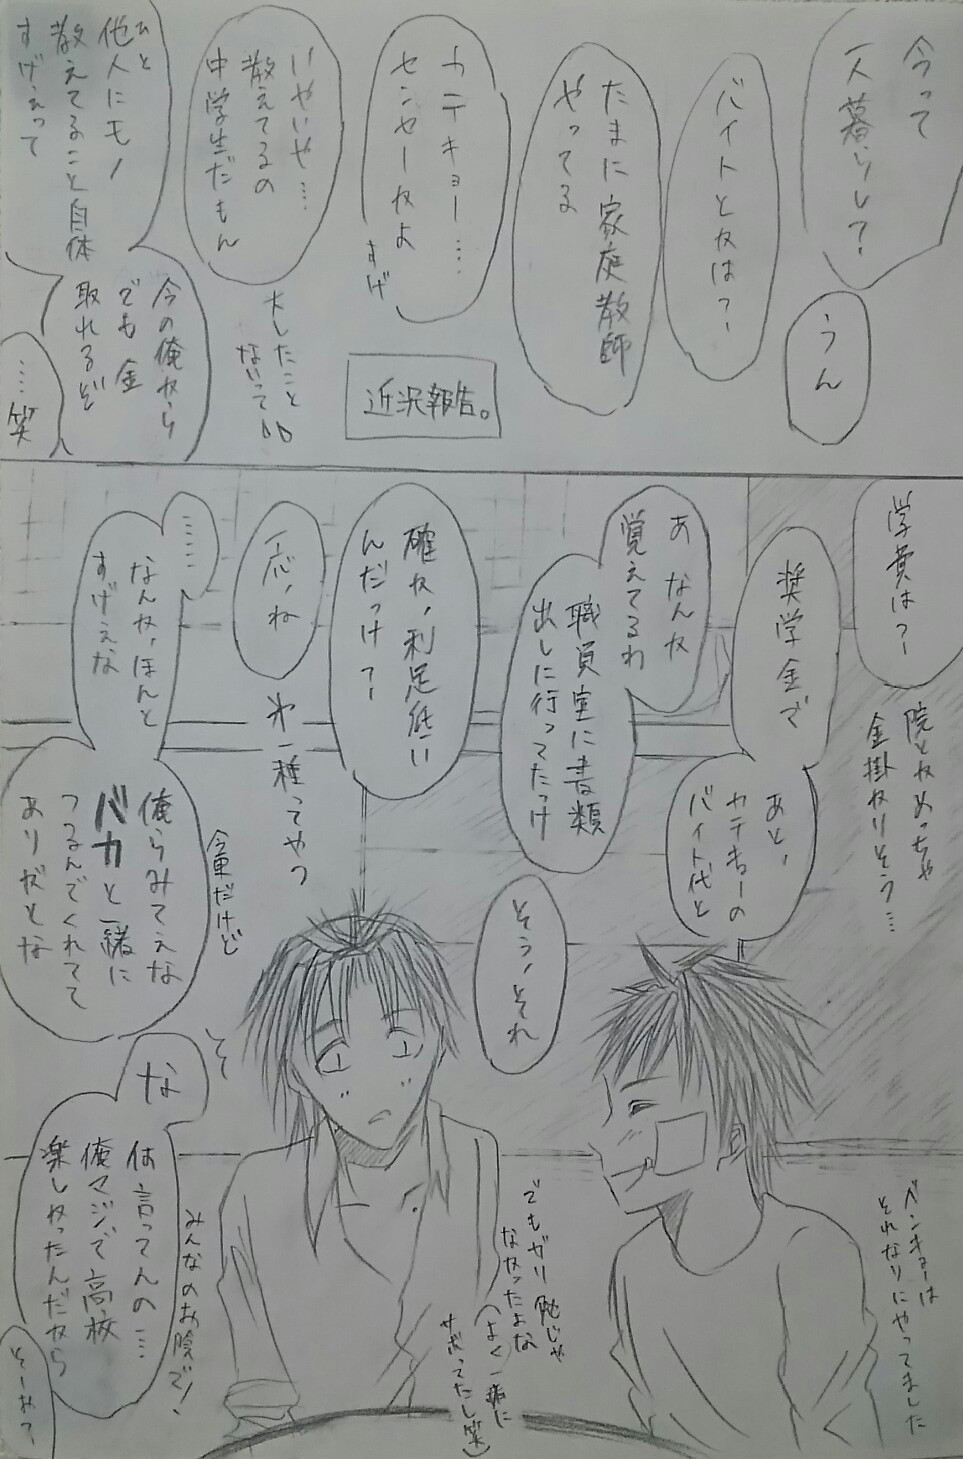 今って
一人暮らし?
うん
バイトとかは?
たまに家庭教師
やってる
カテキョー……
センセーかよ
すげ
近況報告。
いやいや……
教えてるの
中学生だもん
大したこと
ないって
他人にモノ
ひと
教えてること自体
すげぇって
今の俺なら
でも金
取れるぞ
……笑
学費は?
院とかめっちゃ
金掛かりそう…
奨学金で
あと、
カテキョーの
バイト代と
あ なんか
覚えてるわ
職員室に書類
出しに行ってたっけ
そう、それ
確か、利息低い
んだっけ?
一応、ね
第一種ってやつ
……
なんか、ほんと
すげぇな
俺らみてぇな
バカと一緒に
つるんでくれてて
ありがとな
今更だけど
な
何言ってんの…
俺マジで高校
楽しかったんだから
みんなのお陰で!
そーかて?
ベンキョーは
それなりにやってました
でもガリ勉じゃ
なかったよな
(よく一緒に
サボってたし笑)